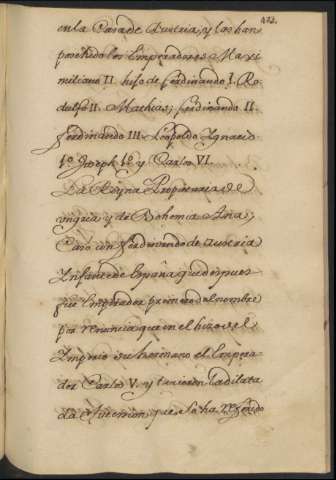 172.
en la Casa de Austria, y los han
posehido los Emperadores Maxi
miliano II. hijo de Ferdinando I. Ro
dulfo II. Mathias; Ferdinando II.
Ferdinando III. Leopoldo Ignacio
1º Joseph 1º y Carlos VI.
La Reyna Propietaria de
ungria, y de Bohemia Ana,
Caso con Ferdinando de Austria
Infante de España que despues
fue Emperador primero del nombre
por renuncia que en el hizo del
Imperio su hermano el Empera
dor Carlos V. y tuvieron la dilata
da subcesion que se ha referido